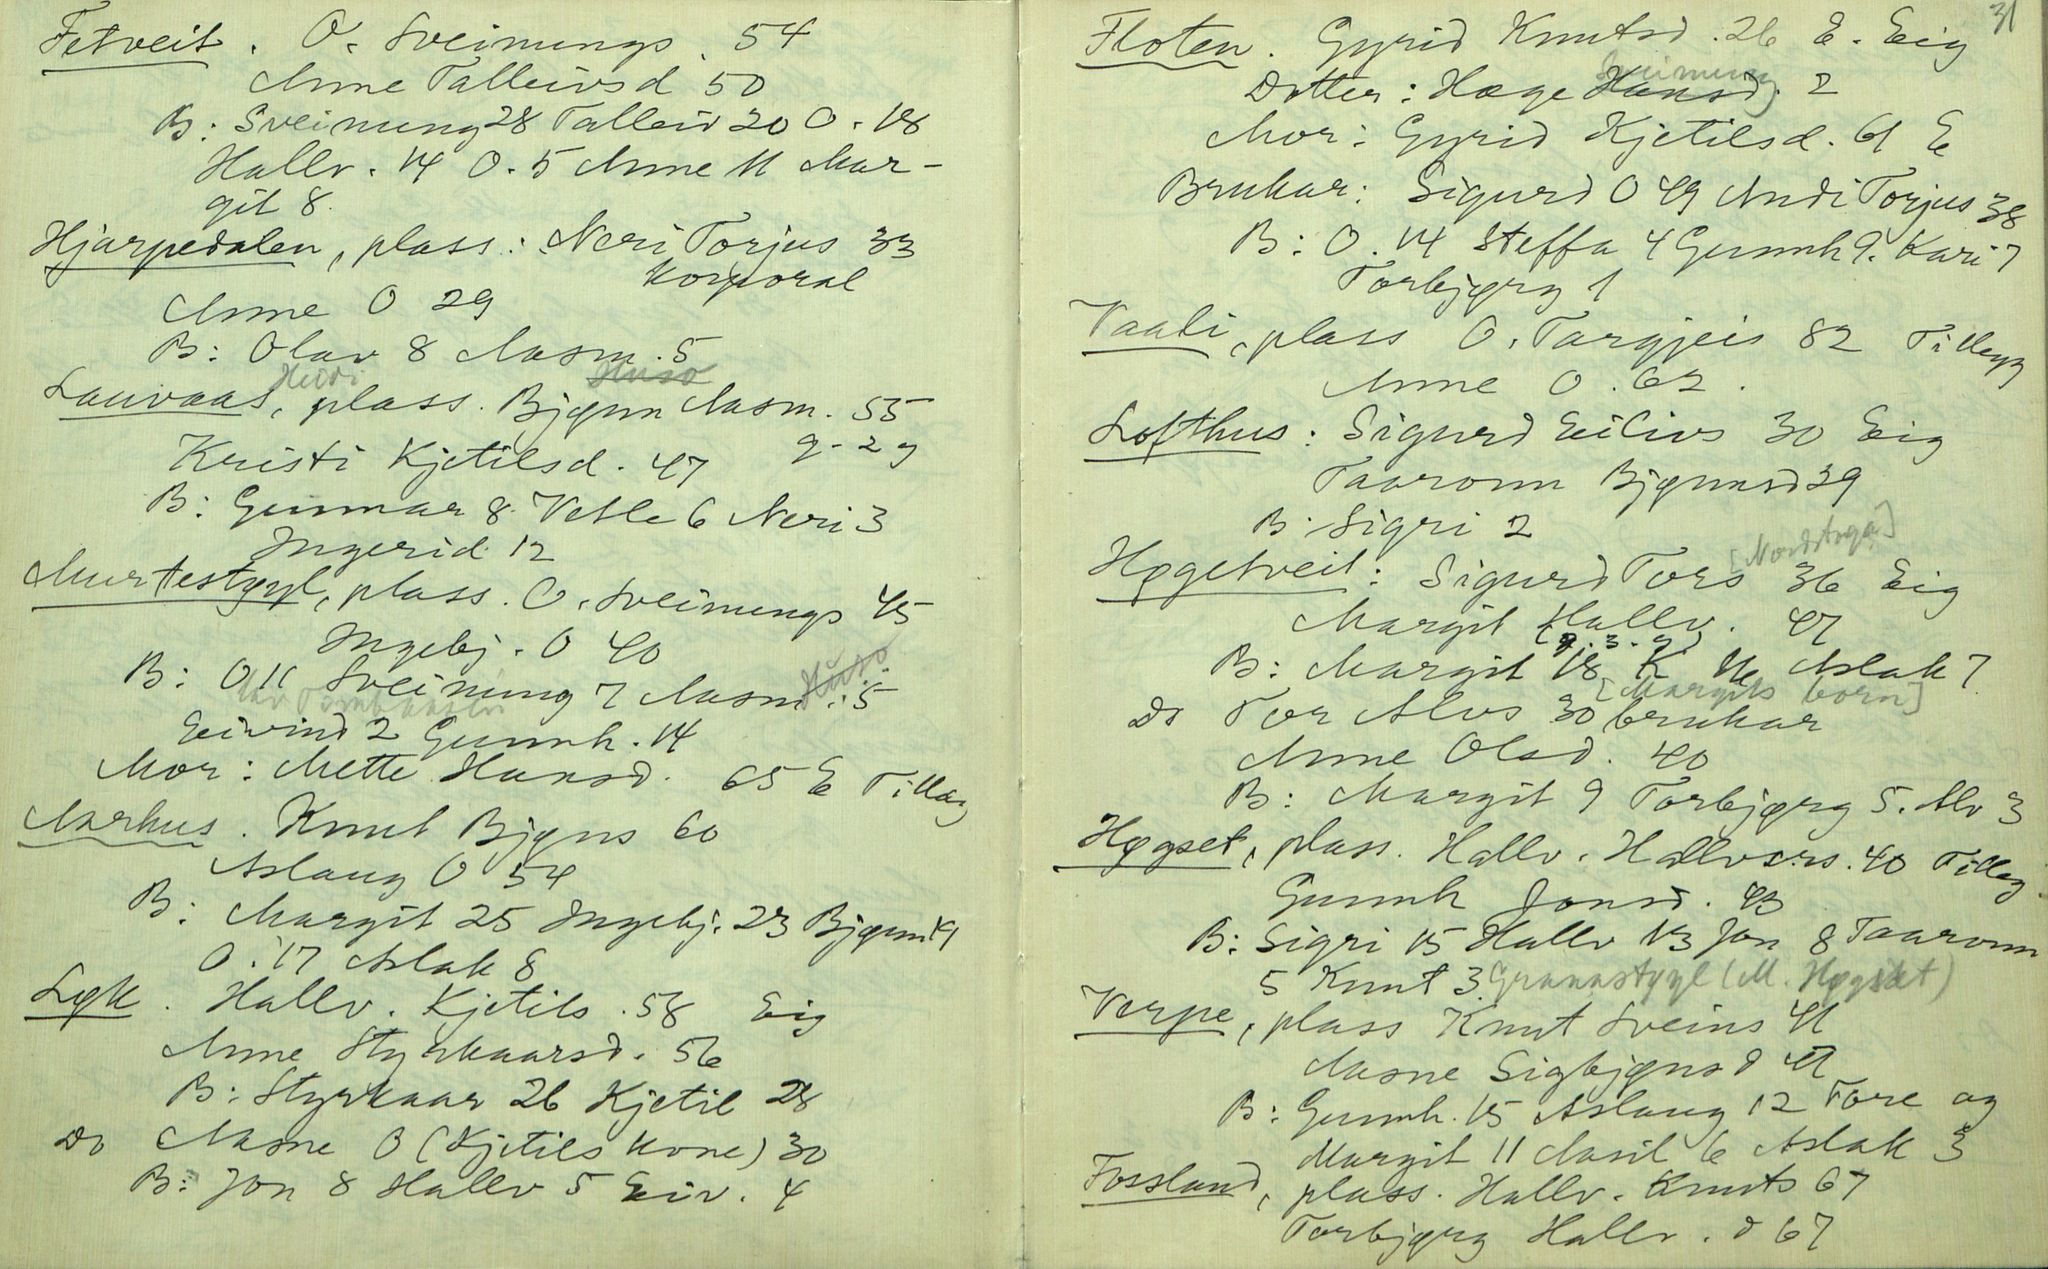 Fetveit. O. Sveinungs. 54
Anne Talleivsd 50
B: Sveinung 28 Talleiv 20 O. 18
Hallv. 14 O. 5 Anne 11 Mar-
git 8.
Hjarpedalen, plass: Neri Torjus 33
Korporal
Anne O 29
B: Olav 8 Aasm. 5
Lauvaas, plass. Bjønn Aasm. 55
Kristi Kjetilsd. 47 g. 2 g
B: Gunnar 8 Vetle 6 Neri 3
Ingerid. 12
Murtestøyl, plass. O. Sveinungs 45
Ingebj. O 40
B: O 11 Sveinung 7 Aasm. 5
Eivind 2 Gunnh. 14
Mor: Mette Hansd. 65 E Tillæg
Aarhus. Knut Bjøns 60
Aslaug O 54
B: Margit 25 Ingebj. 23 Bjønn 19
O. 17 Aslak 8
Løk. Hallv. Kjetils. 58 Eig
Anne Styrkaarsd. 56
B: Styrkaar 26 Kjetil 28
Do Aasne O (Kjetils kone) 30
B: Jon 8 Hallv 5 Eiv. 4
31
Floten. Gyrid Knutsd. 26 E. Eig
Sveinung
Dotter: Hæge Hansd. 2
Mor: Gyrid Kjetilsd. 61 E
Brukar: Sigurd O 49 Andi Torjus 38
B: O. 14 Steffa 4 Gunnh 9. Kari 7
Torbjørg 1
Vaali, plass O. Targjeis 82 Tillegg
Anne O. 62.
Lofthus: Sigurd Eilivs 30 Eig
Taaronn Bjønnsd 29
B. Sigri 2
[Nordstoga]
Høgetveit: Sigurd Tors 36 Eig
Margit Hallv. 47
(g. 3. g.)
B: Margit 18 K 16 Aslak 7
[Margits born]
Do Tor Alvs 30 brukar
Anne Olsd. 40
B: Margit 9 Torbjørg 5. Alv 3
Høgset, plass. Hallv. Hallvors. 40 Tilleg
Gunnh Jonsd. 43
B: Sigri 15 Hallv 13 Jon 8 Taaronn
5 Knut 3. Granastøyl (M. Høgset)
Verpe, plass Knut Sveins 41
Aasne Sigbjønsd 41
B: Gunnh. 15 Aslaug 12 Tore og
Margit 11 Aasil 6 Aslak 3
Fossland, plass. Hallv. Knuts 67
Torbjørg Hallv. d 67